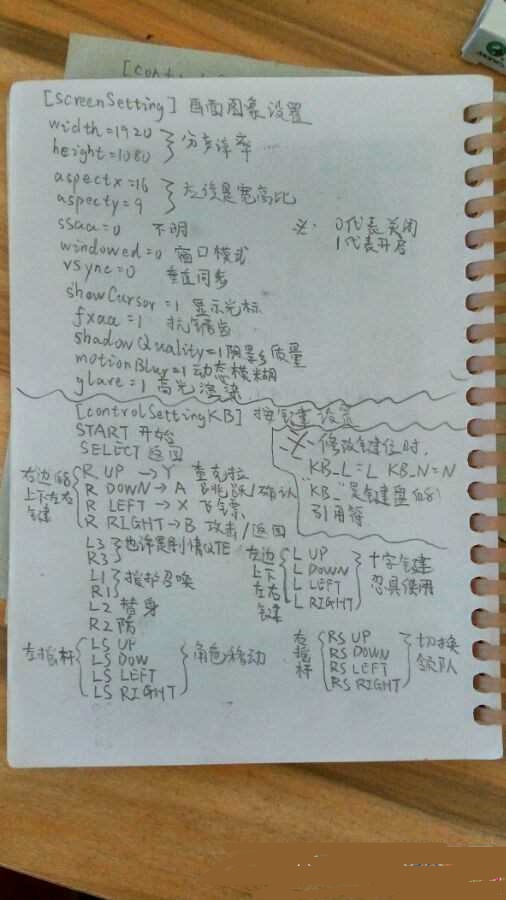 [cont
[screenSetting] 画面图象设置
width=1920
height=1080 } 分步译率
aspectx=16
aspecty=9 } 应该是宽高比
ssaa=0 不明
※. 0代表关闭
1代表开启
windowed=0 窗口模式
vsync=0 垂直同步
showCursor=1 显示光标
fxaa=1 抗锯齿
shadowQuality=1阴影质量
motionBlur=1动态模糊
glare=1 高光渲染
[controlSettingKB] 按键设置
START 开始
SELECT 返回
※ 修改键位时,
KB_L=L KB_N=N
"KB_"是键盘的
引用符
右边的
上下左右
键 { R UP → Y 查克拉
R DOWN → A 跳跃/确认
R LEFT → X 飞镖
R RIGHT → B 攻击/返回
L3
R3 } 也许是剧情QTE
L1
R1 } 指护召唤
L2 替身
R2 防
左边
上下
左右
键 { L UP
L DOWN
L LEFT
L RIGHT } 十字键
忍具使用
左摇杆 { LS UP
LS DOW
LS LEFT
LS RIGHT } 角色移动
右
摇
杆 { RS UP
RS DOWN
RS LEFT
RS RIGHT } 切换
领队